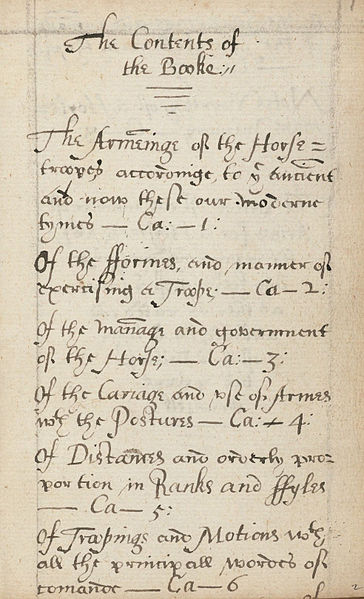 The Contents of
the Booke://
The Armeinge of the Horse=
troopes accordinge, to yͤ Antient
and now these our moderne
tymes — Ca: — 1:
Of the fformes, and manner of
exercising a Troope; — Ca — 2:
Of the manage and government
of the Horse; — Ca: — 3:
Of the Cariage and vse of Armes
wth the Postures — Ca: — 4:
Of Distances and orderly pro-
portion in Ranks and ffyles
— Ca — 5:
Of Trapings and Motions wth
all the principall wordes of
comande — Ca — 6